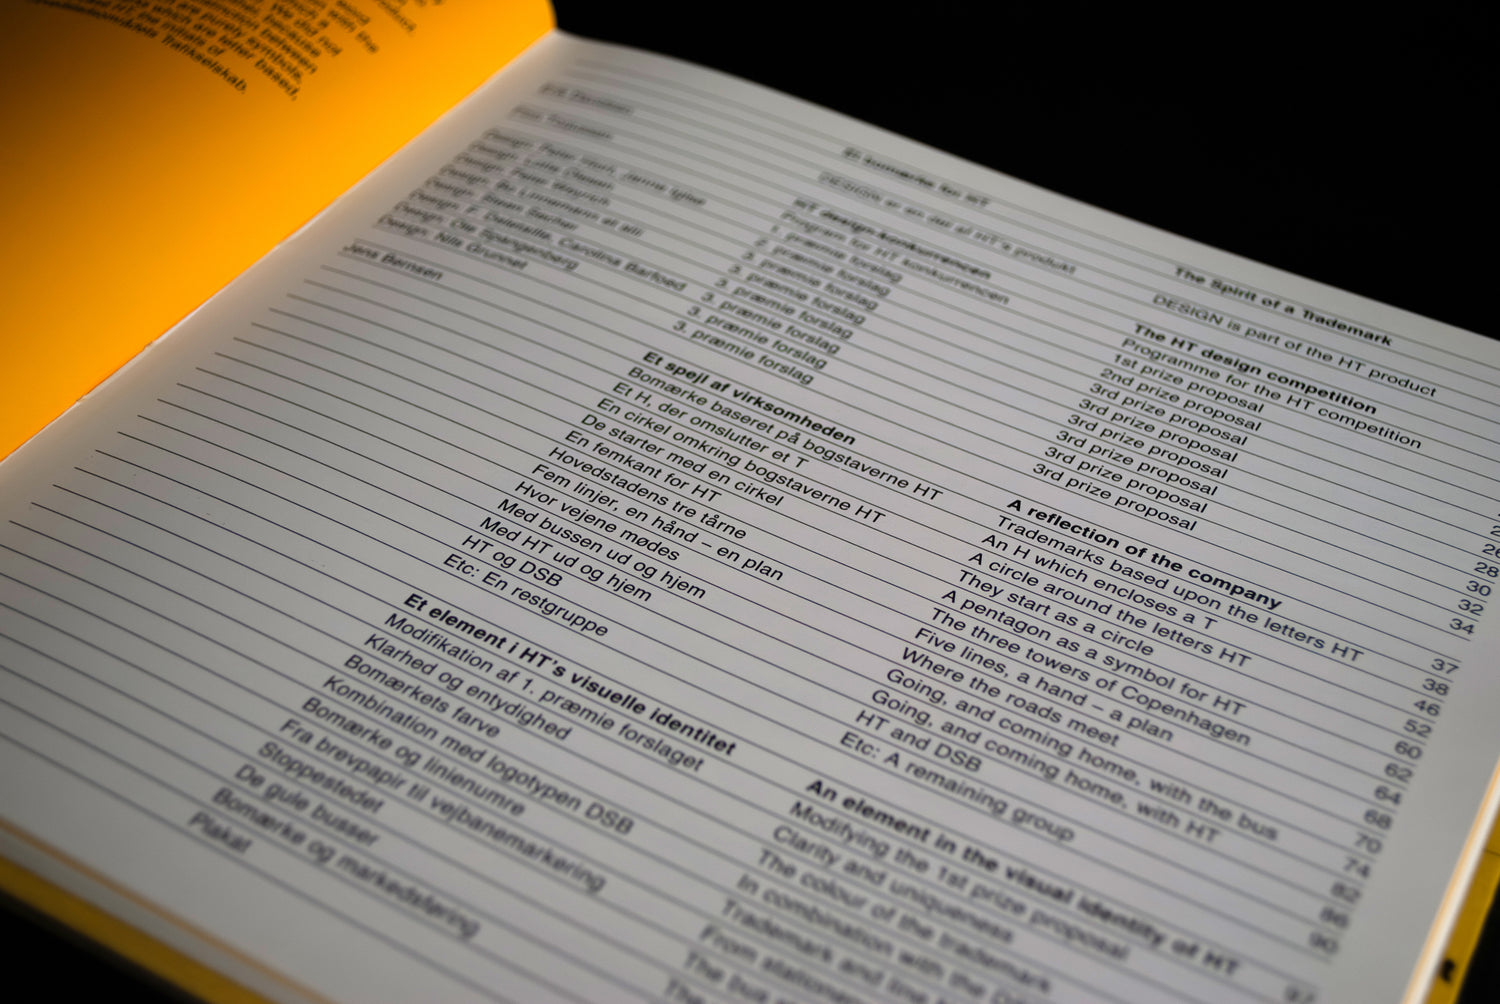 purely symbols,
which are letter based,
the initials of
Trafikselskab.
Et bomærke for HT
DESIGN er en del af HT's produkt
HT design-konkurrencen
Program for HT konkurrencen
Design:
1. præmie forslag
Design:
2. præmie forslag
Design:
3. præmie forslag
Design:
3. præmie forslag
Design:
3. præmie forslag
Design: Carolina Barfoed
3. præmie forslag
Design: Ole Spangenberg
3. præmie forslag
Design: Nils Grunnet
3. præmie forslag
Jens Bernsen
Et spejl af virksomheden
Bomærke baseret på bogstaverne HT
Et H, der omslutter et T
En cirkel omkring bogstaverne HT
De starter med en cirkel
En femkant for HT
Hovedstadens tre tårne
Fem linjer, en hånd – en plan
Hvor vejene mødes
Med bussen ud og hjem
Med HT ud og hjem
HT og DSB
Etc: En restgruppe
Et element i HT's visuelle identitet
Modifikation af 1. præmie forslaget
Klarhed og entydighed
Bomærkets farve
Kombination med logotypen DSB
Bomærke og linienumre
Fra brevpapir til vejbanemarkering
Stoppestedet
De gule busser
Bomærke og markedsføring
Plakat
The Spirit of a Trademark
DESIGN is part of the HT product
The HT design competition
Programme for the HT competition
1st prize proposal
2nd prize proposal
3rd prize proposal
3rd prize proposal
3rd prize proposal
3rd prize proposal
3rd prize proposal
3rd prize proposal
A reflection of the company
Trademarks based upon the letters HT
An H which encloses a T
A circle around the letters HT
They start as a circle
A pentagon as a symbol for HT
The three towers of Copenhagen
Five lines, a hand – a plan
Where the roads meet
Going, and coming home, with the bus
Going, and coming home, with HT
HT and DSB
Etc: A remaining group
An element in the visual identity of HT
Modifying the 1st prize proposal
Clarity and uniqueness
The colour of the trademark
In combination with the
Trademark and line
From
The bus
The
26
28
30
32
34
37
38
46
52
60
62
64
68
70
74
82
86
90